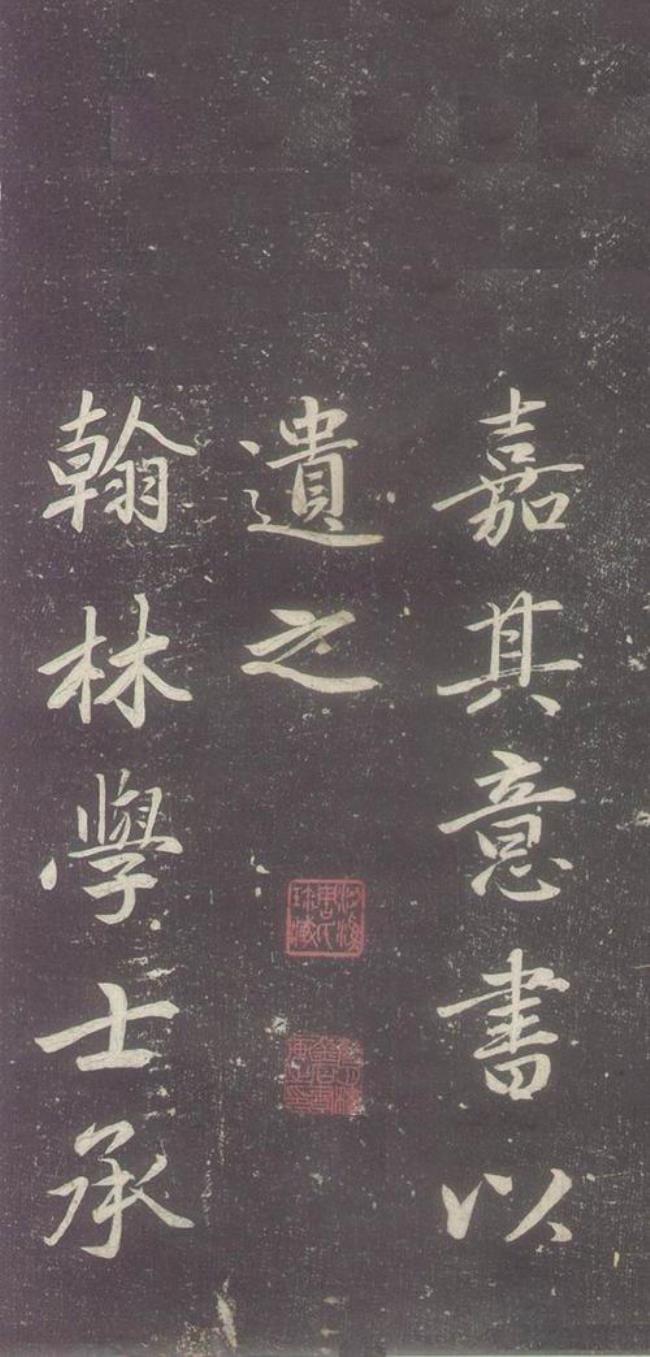 嘉其意書以
遺之
翰林學士承